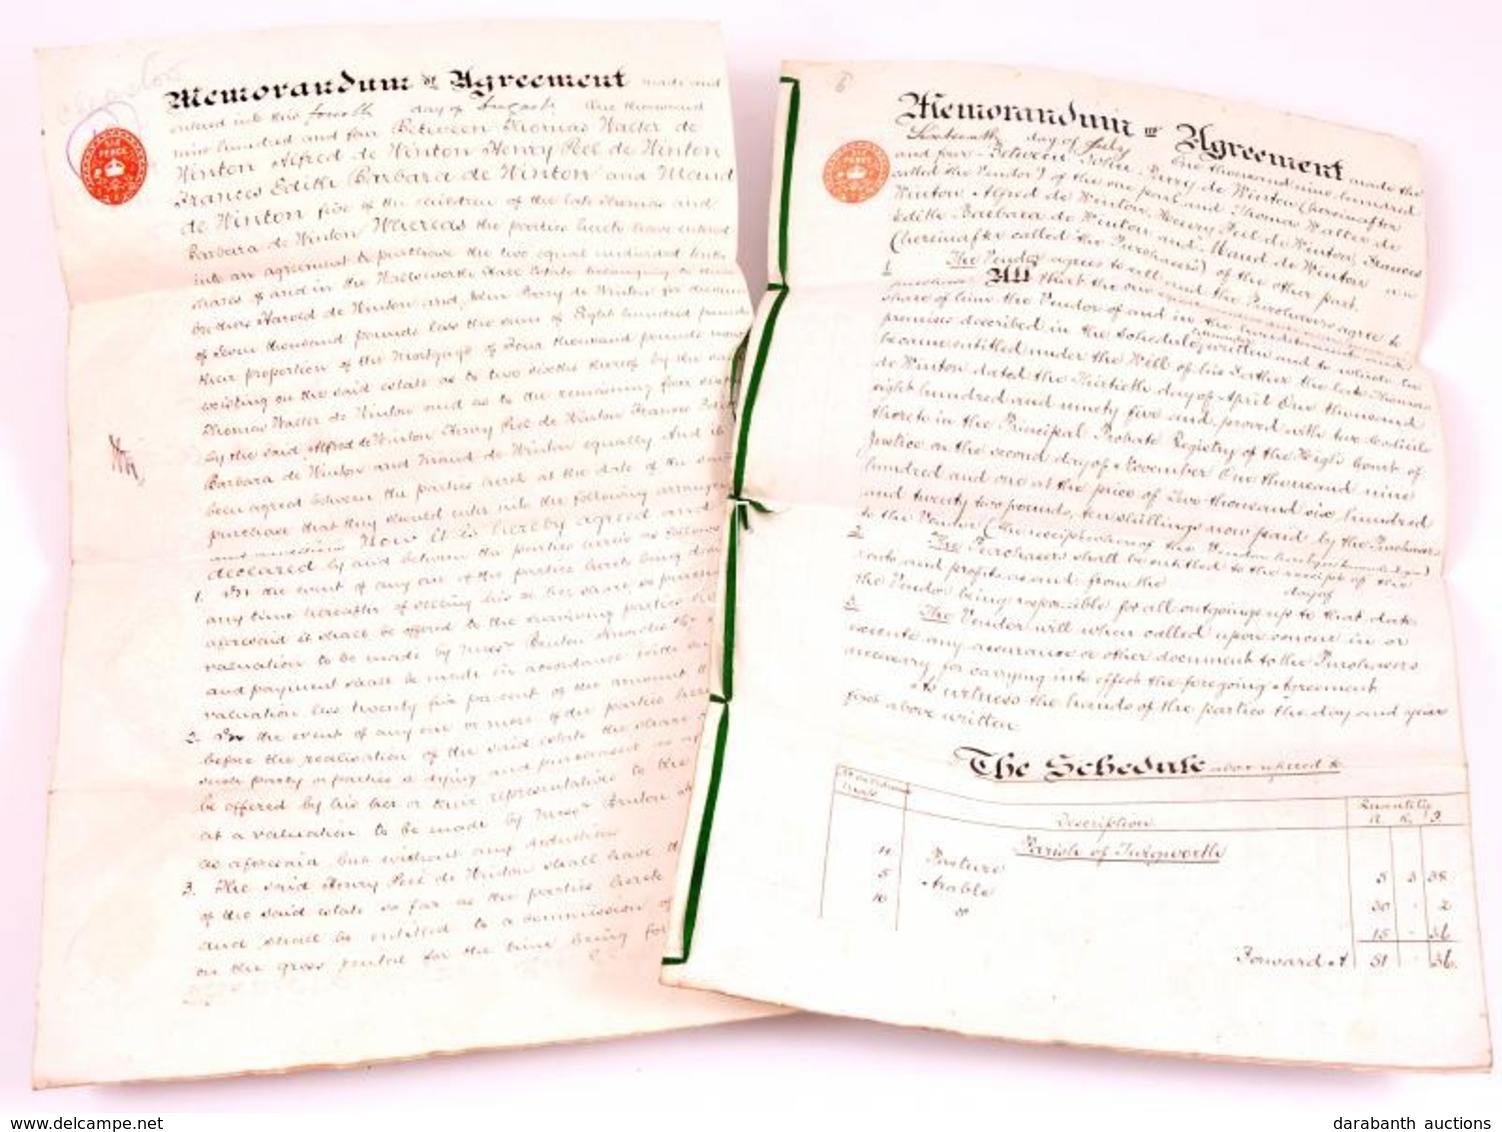 Memorandum of Agreement made and
entered into this fourth day of August One thousand
nine hundred and four Between Thomas Walter de
Winton Alfred de Winton Henry Peel de Winton
Frances Edith Barbara de Winton and Maud
de Winton five of the children of the late Thomas and
Barbara de Winton Whereas the parties hereto have entered
into an agreement to purchase the two equal undivided
shares of and in the Hall Estate belonging to their
brothers Harold de Winton and John Parry de Winton for the sum
of Seven thousand pounds less the sum of Eight hundred pounds
their proportion of the Mortgage of Four thousand pounds now
existing on the said estate as to two sixths thereof by the said
Thomas Walter de Winton and as to the remaining four sixths
by the said Alfred de Winton Henry Peel de Winton Frances Edith
Barbara de Winton and Maud de Winton equally And it
been agreed between the parties hereto at the date of the said
purchase that they should enter into the following arrangement
Now it is hereby agreed and
declared by and between the parties hereto as follows
1. In the event of any one of the parties hereto being
any time hereafter of selling his or her share so purchased
aforesaid it shall be offered to the surviving parties
valuation to be made by Messrs Bruton Knowles
and payment shall be made in accordance with
valuation less twenty five per cent of the amount
2. In the event of any one or more of the parties hereto
before the realisation of the said estate the share
such party or parties so dying and purchased as
be offered by his her or their representatives to the
at a valuation to be made by Messrs Bruton
as aforesaid but without any deduction
3. The said Henry Peel de Winton shall have
of the said estate so far as the parties hereto
and shall be entitled to a commission of
on the gross rental for the time being
SIX
PENCE
6
Memorandum of Agreement made the
Sixteenth day of July One thousand nine hundred
and four Between John Parry de Winton (hereinafter
called the Vendor) of the one part and Thomas Walter de
Winton, Alfred de Winton, Henry Peel de Winton, Frances
Edith Barbara de Winton and Maud de Winton
(hereinafter called the Purchasers) of the other part
1. The Vendor agrees to sell and the Purchasers agree to
purchase All that the one equal undivided
share of him the Vendor of and in the hereditaments and
premises described in the Schedule hereunder written and to which he
became entitled under the Will of his Father the late Thomas
de Winton dated the Thirtieth day of April One thousand
eight hundred and ninety five and proved with two Codicils
thereto in the Principal Probate Registry of the High Court of
Justice on the second day of November One thousand nine
hundred and one at the price of Two thousand six hundred
and twenty two pounds, ten shillings now paid by the Purchasers
to the Vendor (the receipt whereof the Vendor hereby acknowledges)
2. The Purchasers shall be entitled to the receipt of the
rents and profits as and from the day of
the Vendor being responsible for all outgoings up to that date
3. The Vendor will when called upon concur in or
execute any assurance or other document to the Purchasers
necessary for carrying into effect the foregoing Agreement
As witness the hands of the parties the day and year
first above written
The Schedule above referred to
No on Ordnance Description Quantity
A R P
Parish of Twigworth
11 Pasture 5 3 38
5 Arable 30 . 2
10 do 15 . 36
Forward A 51 . 36
www.delcampe.net
darabanth auctions